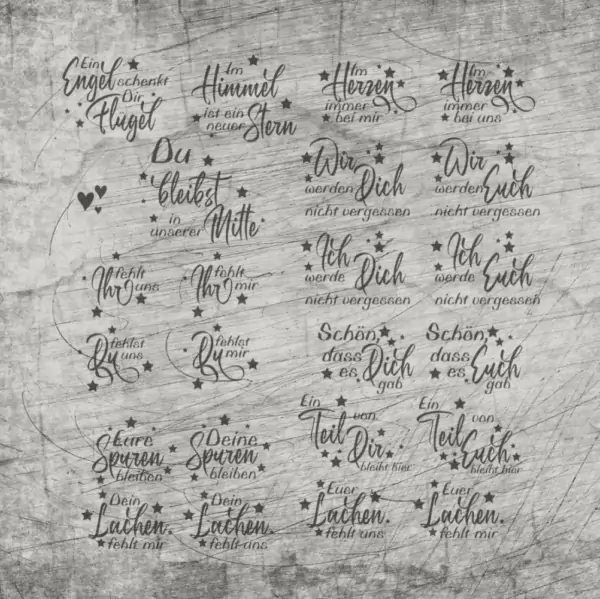 Ein
Engel schenkt
Dir
Flügel
Im
Himmel
ist ein
neuer Stern
Im
Herzen
immer
bei mir
Im
Herzen
immer
bei uns
Du
bleibst
in
unserer Mitte
Wir
werden Dich
nicht vergessen
Wir
werden Euch
nicht vergessen
Ich
werde Dich
nicht vergessen
Ich
werde Euch
nicht vergessen
Ihr fehlt
uns
Ihr fehlt
mir
Du fehlst
uns
Du fehlst
mir
Schön,
dass
es Dich
gab
Schön,
dass
es Euch
gab
Eure
Spuren
bleiben
Deine
Spuren
bleiben
Ein
Teil von
Dir
bleibt hier
Ein
Teil von
Euch
bleibt hier
Dein
Lachen
fehlt mir
Dein
Lachen
fehlt uns
Euer
Lachen
fehlt uns
Euer
Lachen
fehlt mir